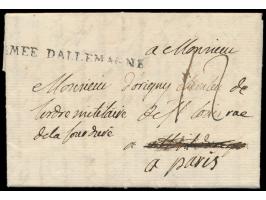 MEE DALLEMAGNE
a Monsieur
Monsieur Dorigny de
Lordre militaire de St Louis rue
de la
a
a paris